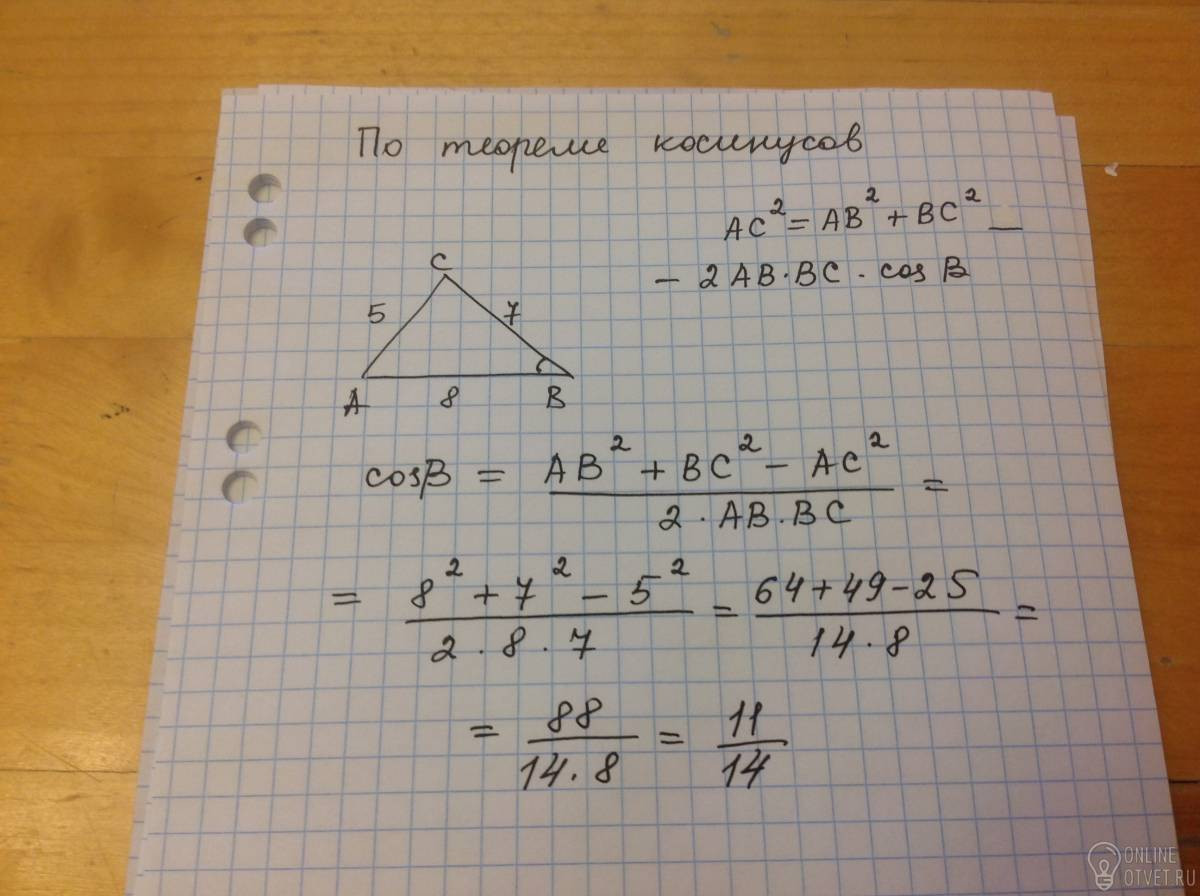 По теореме косинусов
AC² = AB² + BC² —
– 2AB·BC · cos B
C
5 7
A 8 B
cosB = (AB² + BC² – AC²) / (2 · AB · BC) =
= (8² + 7² – 5²) / (2 · 8 · 7) = (64 + 49 – 25) / (14 · 8) =
= 88 / (14 · 8) = 11 / 14
ONLINE
OTVET.RU